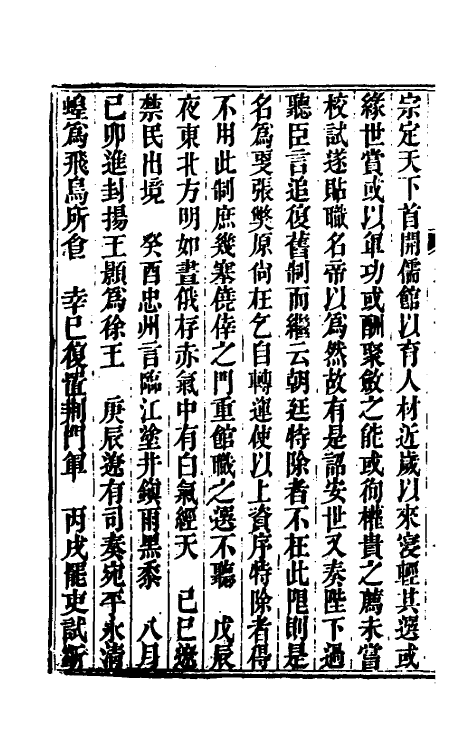 宗定天下首開儒館以育人材近歲以來寖輕其選或
緣世賞或以軍功或酬聚斂之能或徇權貴之薦未嘗
校試遂貼職名帝以為然故有是詔安世又奏陛下過
聽臣言追復舊制而繼云朝廷特除者不在此限則是
名為更張弊原尙在乞自轉運使以上資序特除者得
不用此制庶幾塞僥倖之門重館職之選不聽　戊辰
夜東北方明如晝俄成赤氣中有白氣經天　己巳遼
禁民出境　癸酉忠州言臨江塗井鎭雨黑黍　八月
己卯進封揚王顥為徐王　庚辰遼有司奏宛平永清
蝗為飛鳥所食　辛巳復置荆門軍　丙戌罷吏試斷